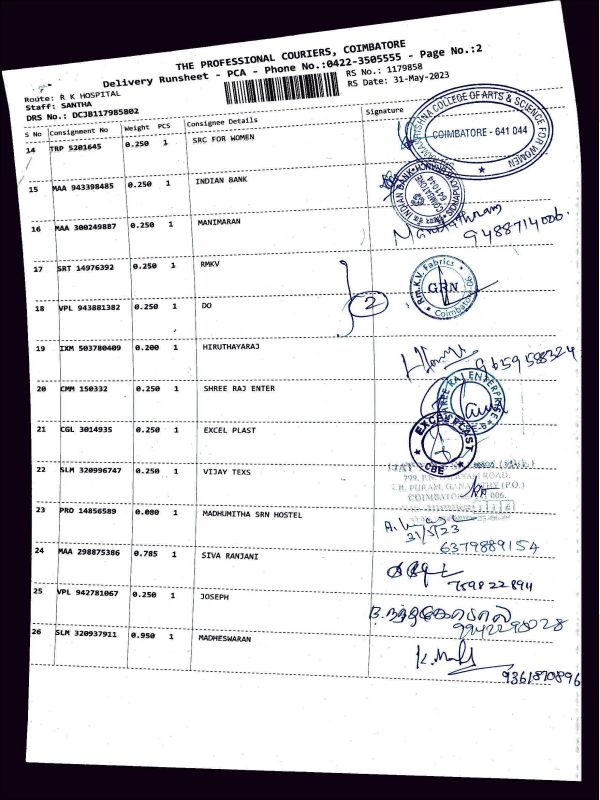 THE PROFESSIONAL COURIERS, COIMBATORE
Delivery Runsheet - PCA - Phone No.:0422-3505555 - Page No.:2
Route: R K HOSPITAL
Staff: SANTHA
DRS No.: DCJB117985802
RS No.: 1179858
RS Date: 31-May-2023
S No Consignment No Weight PCS Consignee Details Signature
14 TRP 5201645 0.250 1 SRC FOR WOMEN
KRISHNA COLLEGE OF ARTS & SCIENCE FOR WOMEN
COIMBATORE - 641 044
15 MAA 943398485 0.250 1 INDIAN BANK
INDIAN BANK
COIMBATORE
641044
16 MAA 300249887 0.250 1 MANIMARAN
9488714006.
17 SRT 14976392 0.250 1 RMKV
Rm.K.V. Fabrics
GRN
Coimbatore
18 VPL 943881382 0.250 1 DO
2
19 IXM 503780409 0.200 1 HIRUTHAYARAJ
9659588324
20 CMM 150332 0.250 1 SHREE RAJ ENTER
SHREE RAJ ENTERPRISE
21 CGL 3014935 0.250 1 EXCEL PLAST
EXCEL PLAST
CBE
22 SLM 320996747 0.250 1 VIJAY TEXS
23 PRO 14856589 0.080 1 MADHUMITHA SRN HOSTEL
31/5/23
6379889154
24 MAA 298875386 0.785 1 SIVA RANJANI
759822894
25 VPL 942781067 0.250 1 JOSEPH
9942298028
26 SLM 320937911 0.950 1 MADHESWARAN
9361810896